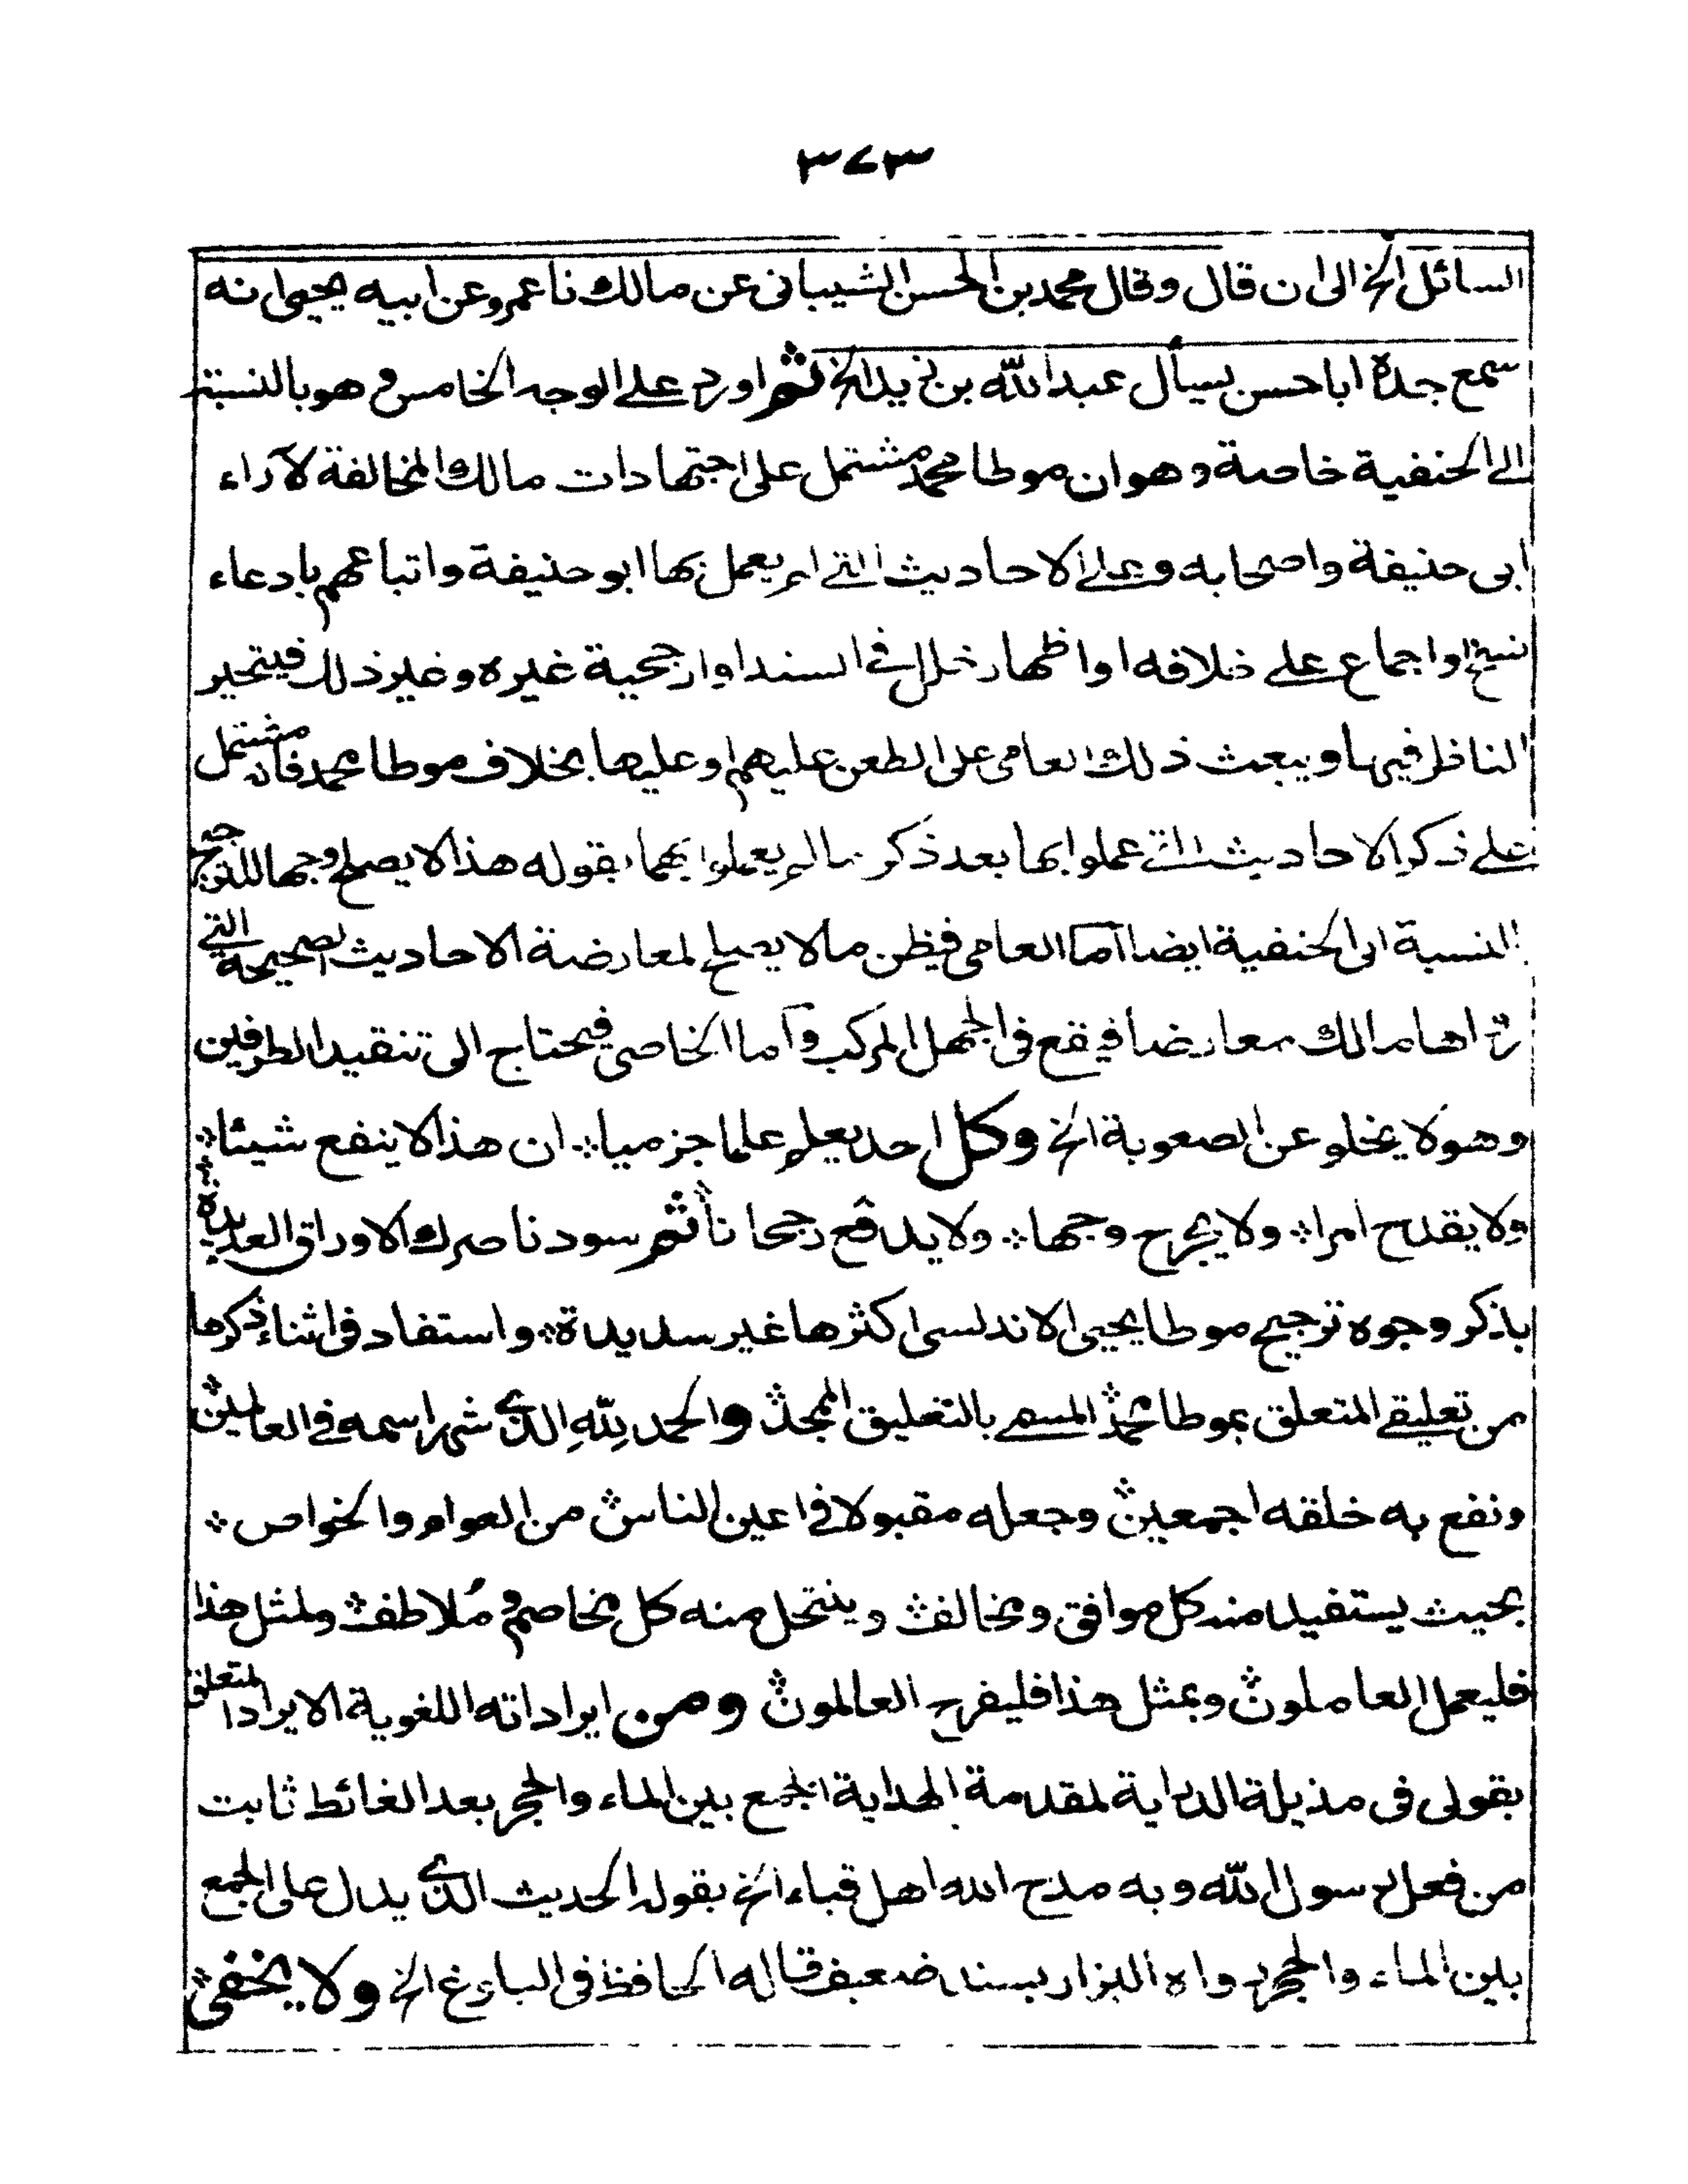 ٣٧٣
السائل الخ الى ان قال وقال محمد بن الحسن الشيبانى عن مالك نا عمرو عن ابيه يحيى انه
سمع جدة ابا حسن يسأل عبد الله بن زيد الخ ثم اورد على الوجه الخامس وهو بالنسبة
الى الحنفية خاصة وهو ان موطا محمد مشتمل على اجتهادات مالك المخالفة لآراء
ابى حنيفة واصحابه وعلى الاحاديث التى لم يعمل بها ابو حنيفة واتباعهم بادعاء
نسخ او اجماع على خلافه او اظهار خلل فى السند او ارجحية غيره وغير ذلك فيتحير
الناظر فيها ويبعث ذلك العامى على الطعن عليهم او عليها بخلاف موطا محمد فانه مشتمل
على ذكر الاحاديث التى عملوا بها بعد ذكر مالم يعملوا بهما بقوله هذا لا يصلح وجها للترجيح
بالنسبة الى الحنفية ايضا اما العامى فيظن مالا يصلح لمعارضة الاحاديث الصحيحة التى
رواها مالك معارضا فيقع فى الجهل المركب وآما الخاصى فيحتاج الى تنقيد الطرفين
وهو لا يخلو عن الصعوبة الخ وكل احد يعلم علما جزميا ان هذا لا ينفع شيئا
ولا يقدح امرا ولا يجرح وجها ولا يدفع رجحانا ثم سود ناصرك الاوراق العديدة
بذكر وجوه ترجيح موطا يحيى الاندلسى اكثرها غير سديدة واستفاد فى اثناء ذكرها
من تعليقى المتعلق بموطا محمد المسمى بالتعليق الممجد والحمد لله الذى شهر اسمه فى العالمين
ونفع به خلقه اجمعين وجعله مقبولا فى اعين الناس من العوام والخواص
بحيث يستفيد منه كل موافق ومخالف وينتحل منه كل مخاصم و مُلاطف ولمثل هذا
فليعمل العاملون وبمثل هذا فليفرح العالمون ومن ايراداته اللغوية الايراد المتعلق
بقولى فى مذيلة الدراية لمقدمة الهداية الجمع بين الماء والحجر بعد الغائط ثابت
من فعل رسول الله وبه مدح الله اهل قباء الخ بقوله الحديث الذى يدل على الجمع
بين الماء والحجر رواه البزار بسند ضعيف قاله الحافظ فى البلوغ الخ ولا يخفى